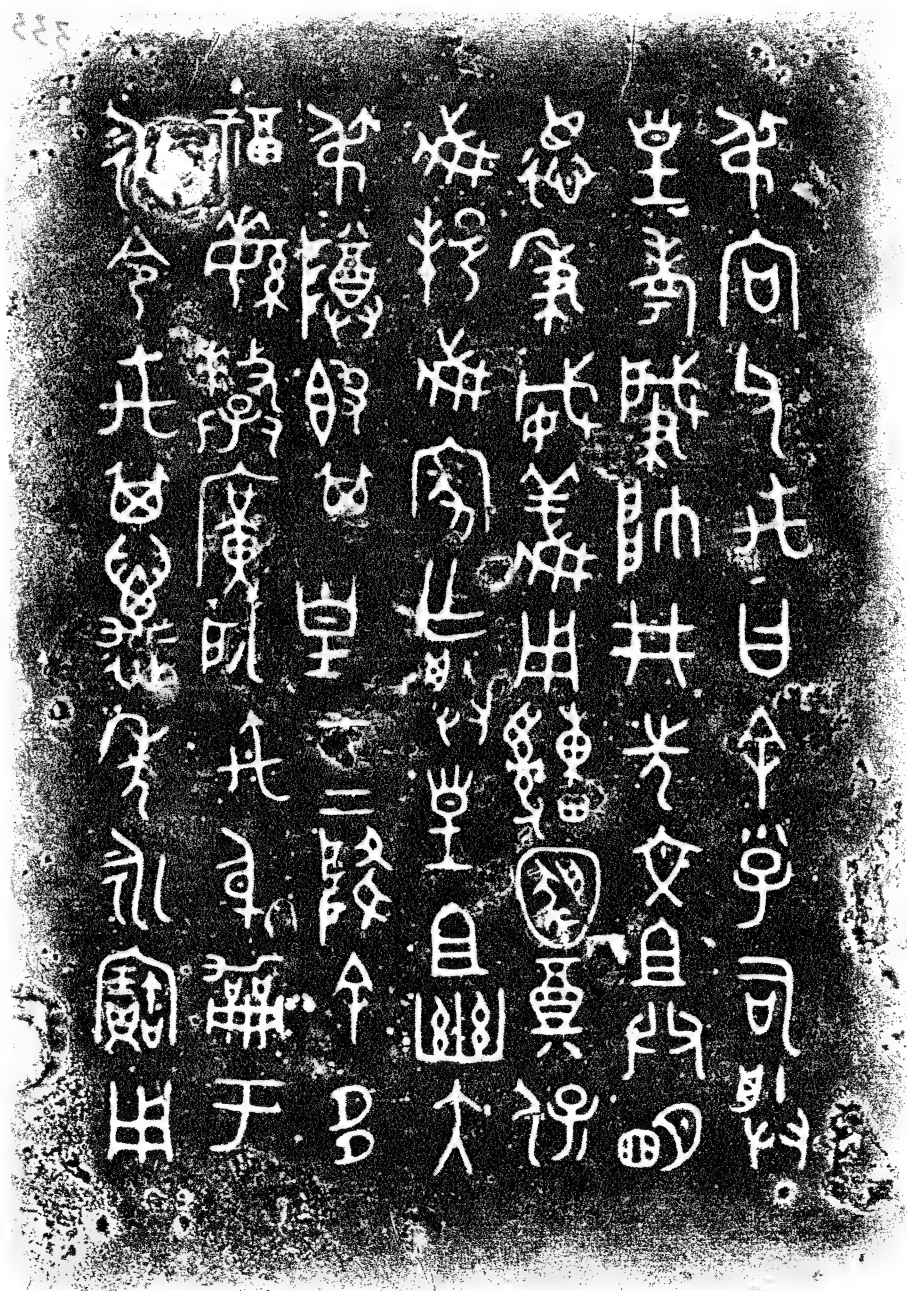 弔向父禹曰余小子司朕
皇考肇帥井先文且共明
德秉威義用圂奠保
我邦我家乍朕皇且幽大
弔尊簋其皇才上降余多
福繁孷廣啓禹身于
永令禹其萬年永寶用